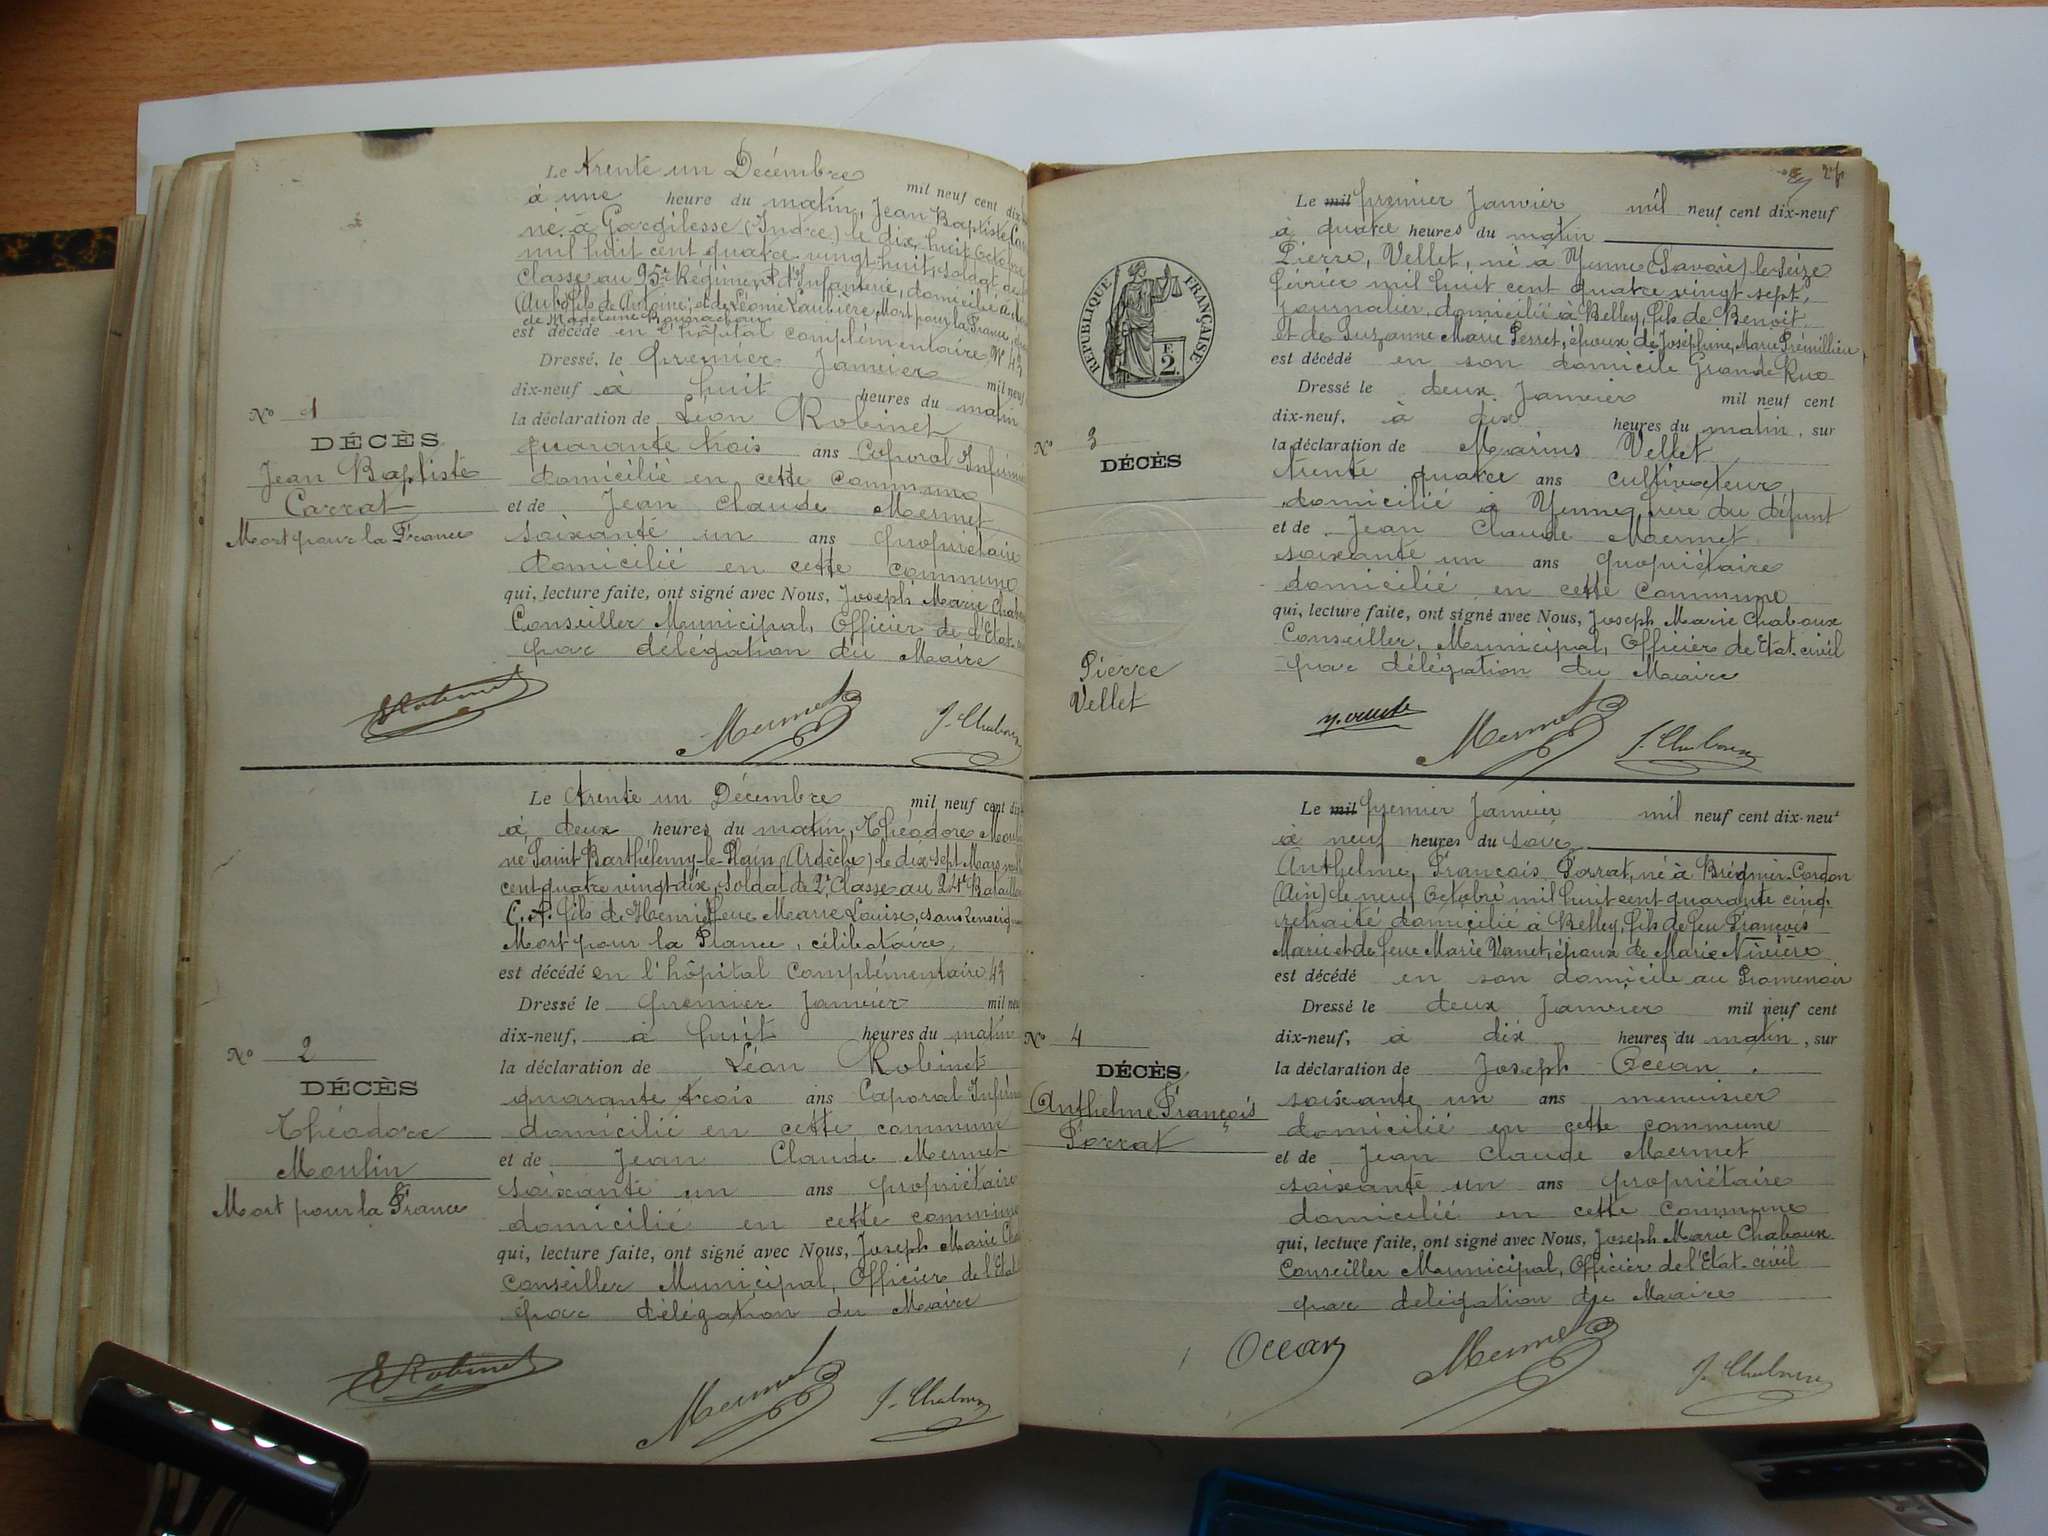 Le trente un Décembre mil neuf cent dix
à une heure du matin, Jean Baptiste
né à Gargilesse (Indre) le dix huit Octobre
mil huit cent quatre vingt huit, soldat de
classe au 95e Régiment d'Infanterie, domicilié à
fils de Antoine, et de Léonie Laubière, Mort pour la France,
de Madeleine
est décédé en l'hôpital complémentaire No 43
Dressé, le premier Janvier mil neuf
dix-neuf à huit heures du matin
la déclaration de Léon Robinet
quarante trois ans Caporal
domicilié en cette commune
et de Jean Claude Mermet
soixante un ans propriétaire
domicilié en cette commune
qui, lecture faite, ont signé avec Nous, Joseph Marie
Conseiller Municipal, Officier de l'Etat
par délégation du Maire
No 1
DÉCÈS
Jean Baptiste
Carrat
Mort pour la France
Robinet Mermet J. Chaboux
Le trente un Décembre mil neuf cent dix
à deux heures du matin, Théodore
né Saint Barthélemy-le-Plain (Ardèche) le dix sept Mars
cent quatre vingt dix, soldat de 2e Classe au
fils de Henri feue Marie Louise, sans
Mort pour la France, célibataire,
est décédé en l'hôpital Complémentaire
Dressé le premier Janvier mil neuf
dix-neuf, à huit heures du matin
la déclaration de Léon Robinet
quarante trois ans Caporal
domicilié en cette commune
et de Jean Claude Mermet
soixante un ans propriétaire
domicilié en cette commune
qui, lecture faite, ont signé avec Nous, Joseph Marie
Conseiller Municipal, Officier de l'Etat
par délégation du Maire
No 2
DÉCÈS
Théodore
Moulin
Mort pour la France
Robinet Mermet J. Chaboux
Le mil premier Janvier mil neuf cent dix-neuf
à quatre heures du matin
Pierre, Vellet, né à Yenne (Savoie) le seize
février mil huit cent quatre vingt sept,
journalier, domicilié à Belley, fils de Benoit
et de Suzanne Marie Perret, époux de Joséphine, Marie Prémillieu,
est décédé en son domicile Grande Rue
Dressé le deux Janvier mil neuf cent
dix-neuf, à dix heures du matin, sur
la déclaration de Marius Vellet
trente quatre ans cultivateur
domicilié à Yenne frère du défunt
et de Jean Claude Mermet
soixante un ans propriétaire
domicilié en cette commune
qui, lecture faite, ont signé avec Nous, Joseph Marie Chaboux
Conseiller, Municipal, Officier de Etat-civil
par délégation du Maire
RÉPUBLIQUE FRANÇAISE
E
2.
No 3
DÉCÈS
Pierre
Vellet
Mermet J. Chaboux
Le mil premier Janvier mil neuf cent dix-neuf
à neuf heures du soir
Anthelme, François Porrat, né à Brégnier-Cordon
(Ain) le neuf Octobre mil huit cent quarante cinq
retraité domicilié à Belley, fils de feu François
Marie et de feue Marie Vanet, époux de Marie Nivière
est décédé en son domicile au Promenoir
Dressé le deux Janvier mil neuf cent
dix-neuf, à dix heures du matin, sur
la déclaration de Joseph Occan
soixante un ans menuisier
domicilié en cette commune
et de Jean Claude Mermet
soixante un ans propriétaire
domicilié en cette Commune
qui, lecture faite, ont signé avec Nous, Joseph Marie Chaboux
Conseiller Municipal, Officier de l'Etat-civil
par délégation du Maire
No 4
DÉCÈS
Anthelme François
Porrat
Occan Mermet J. Chaboux